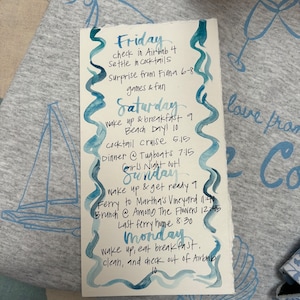 Friday
check in Airbnb 4
settle in cocktails
Surprise from Fiona 6-8
games & fun
Saturday
wake up & breakfast 9
Beach Day! 10
cocktail cruise 5:15
Dinner @ Tugboats 7:15
Girls Night out!
Sunday
wake up & get ready 9
Ferry to Martha's Vineyard
Brunch @ Among The Flowers
Last ferry home 8:30
Monday
wake up, eat breakfast,
clean, and check out of Airbnb
10
love from